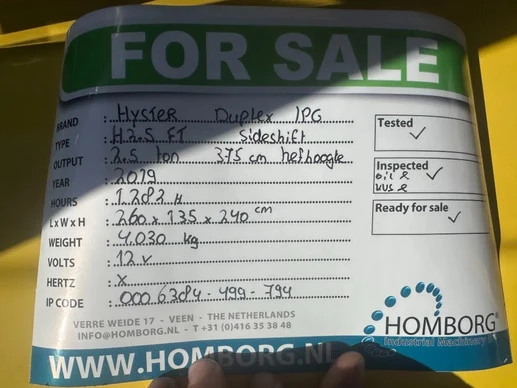 FOR SALE
BRAND : HYSTER Duplex LPG
TYPE : H2.5 FT Sideshift
OUTPUT : 2.5 ton 375 cm hefhoogte
YEAR : 2019
HOURS : 1.282 H
L x W x H : 260 x 135 x 240 cm
WEIGHT : 4.030 kg
VOLTS : 12 v
HERTZ : x
IP CODE : 000 6384 - 499 - 794
Tested ✓
Inspected ✓
Ready for sale ✓
VERRE WEIDE 17 - VEEN - THE NETHERLANDS
INFO@HOMBORG.NL - T +31 (0)416 35 38 48
HOMBORG®
Industrial Machinery
WWW.HOMBORG.NL